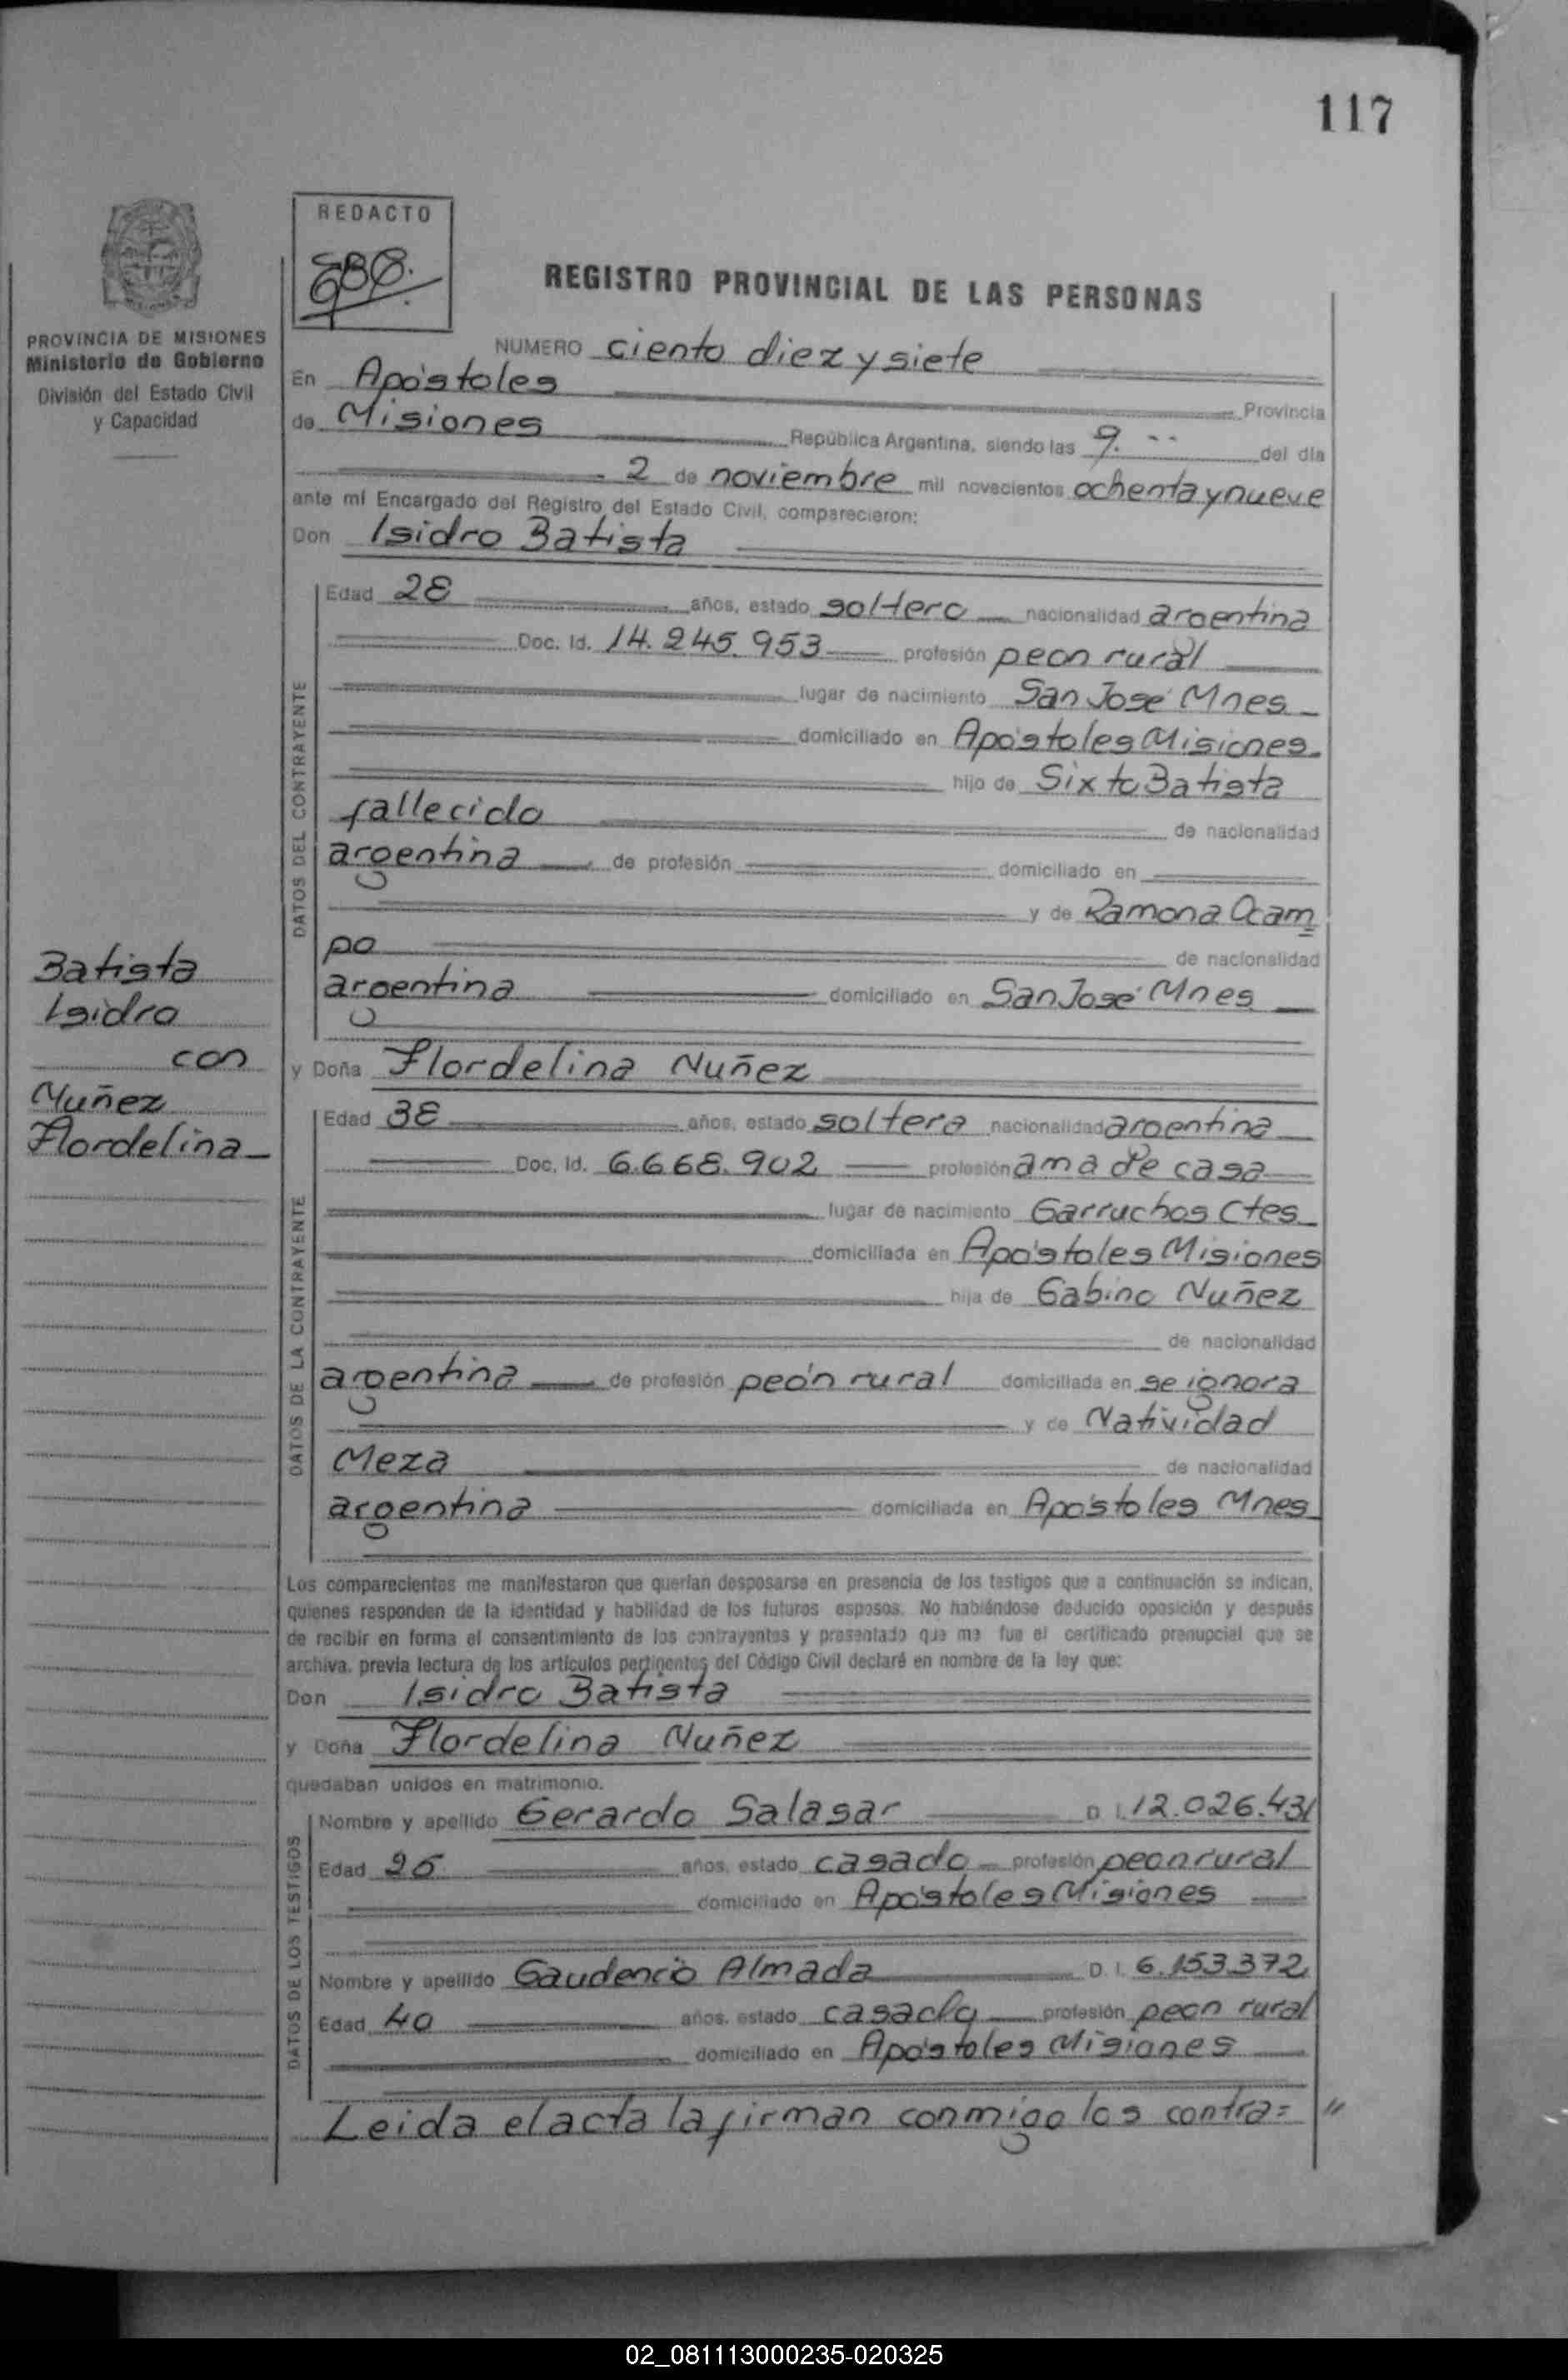 117
REDACTO
REGISTRO PROVINCIAL DE LAS PERSONAS
PROVINCIA DE MISIONES
Ministerio de Gobierno
División del Estado Civil
y Capacidad
NUMERO ciento diez y siete
En Apóstoles Provincia
de Misiones República Argentina, siendo las 9. -- del día
2 de noviembre mil novecientos ochenta y nueve
ante mí Encargado del Registro del Estado Civil, comparecieron:
Don Isidro Batista
DATOS DEL CONTRAYENTE
Edad 28 años, estado soltero nacionalidad argentina
Doc. Id. 14.245.953 profesión peon rural
lugar de nacimiento San José Mnes
domiciliado en Apóstoles Misiones
hijo de Sixto Batista
fallecido de nacionalidad
argentina de profesión domiciliado en
y de Ramona Ocam
po de nacionalidad
argentina domiciliado en San José Mnes
Batista
Isidro
con
Nuñez
Flordelina
y Doña Flordelina Nuñez
DATOS DE LA CONTRAYENTE
Edad 38 años, estado soltera nacionalidad argentina
Doc. Id. 6.668.902 profesión ama de casa
lugar de nacimiento Garruchos Ctes
domiciliada en Apóstoles Misiones
hija de Gabino Nuñez
de nacionalidad
argentina de profesión peón rural domiciliada en se ignora
y de Natividad
Meza de nacionalidad
argentina domiciliada en Apóstoles Mnes
Los comparecientes me manifestaron que querían desposarse en presencia de los testigos que a continuación se indican,
quienes responden de la identidad y habilidad de los futuros esposos. No habiéndose deducido oposición y después
de recibir en forma el consentimiento de los contrayentes y presentado que me fue el certificado prenupcial que se
archiva, previa lectura de los artículos pertinentes del Código Civil declaré en nombre de la ley que:
Don Isidro Batista
y Doña Flordelina Nuñez
quedaban unidos en matrimonio.
DATOS DE LOS TESTIGOS
Nombre y apellido Gerardo Salasar D. I. 12.026.431
Edad años, estado casado profesión peon rural
domiciliado en Apóstoles Misiones
Nombre y apellido Gaudencio Almada D. I. 6.153.372
Edad 40 años, estado casado profesión peon rural
domiciliado en Apóstoles Misiones
Leida el acta la firman conmigo los contra= "
02_081113000235-020325